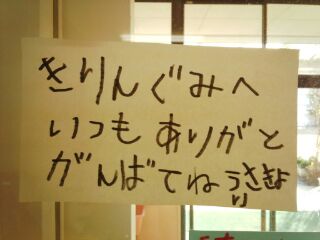 きりんぐみへ
いつも ありがと
がんばてね うさきよ
り